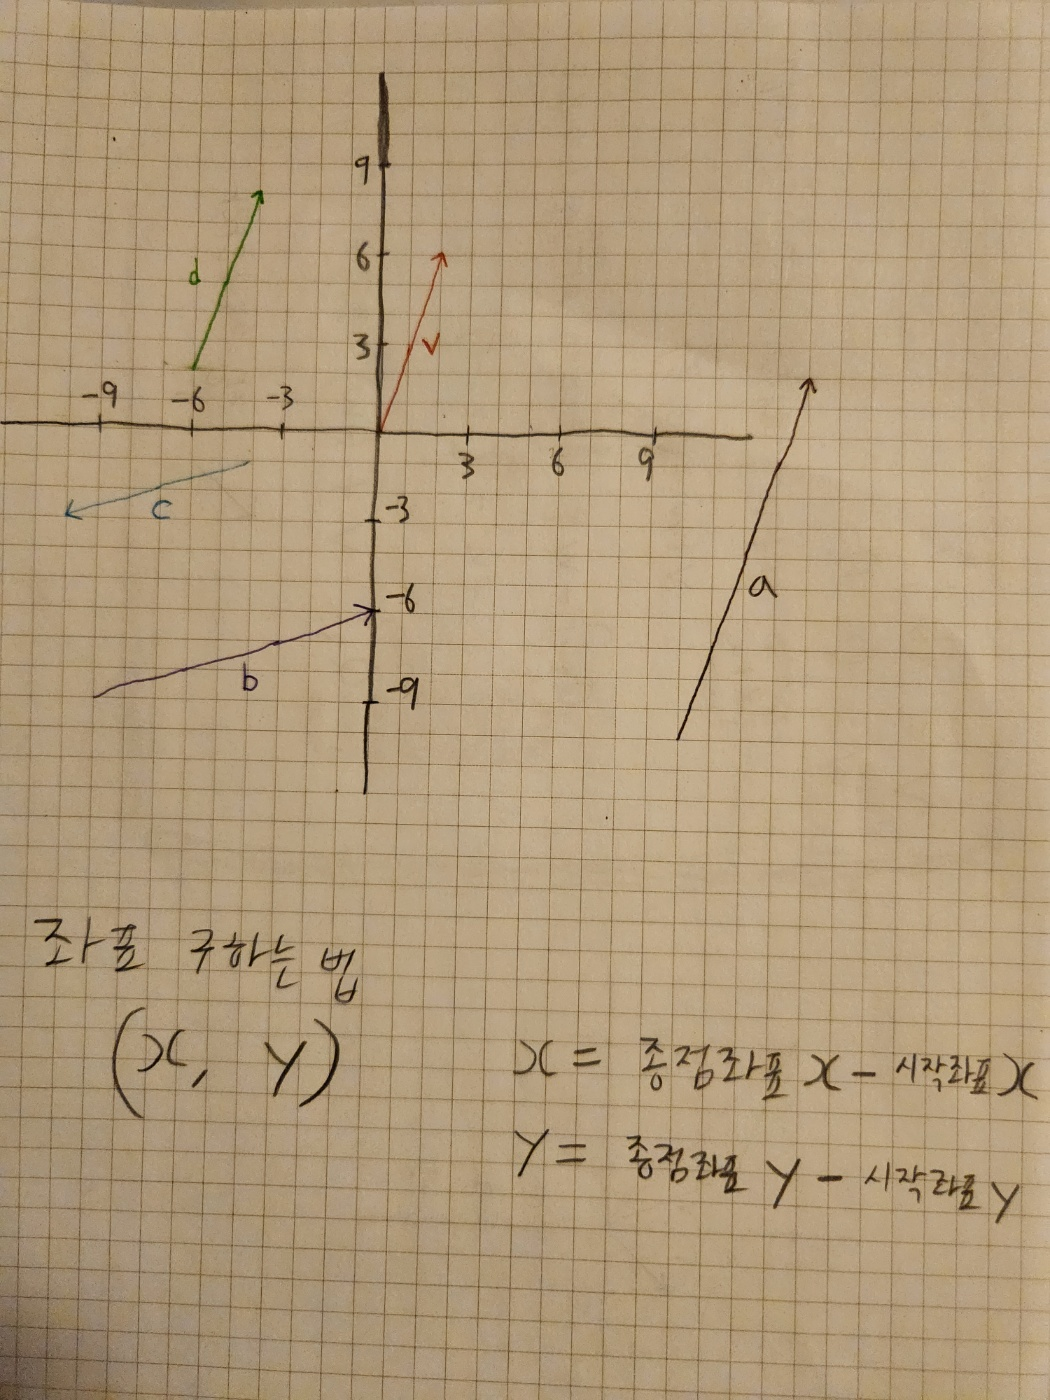 9
d
6
v
3
-9 -6 -3
3 6 9
c
-3
a
-6
b
-9
좌표 구하는 법
(x, y)
x = 종점좌표 x - 시작좌표 x
y = 종점좌표 y - 시작좌표 y